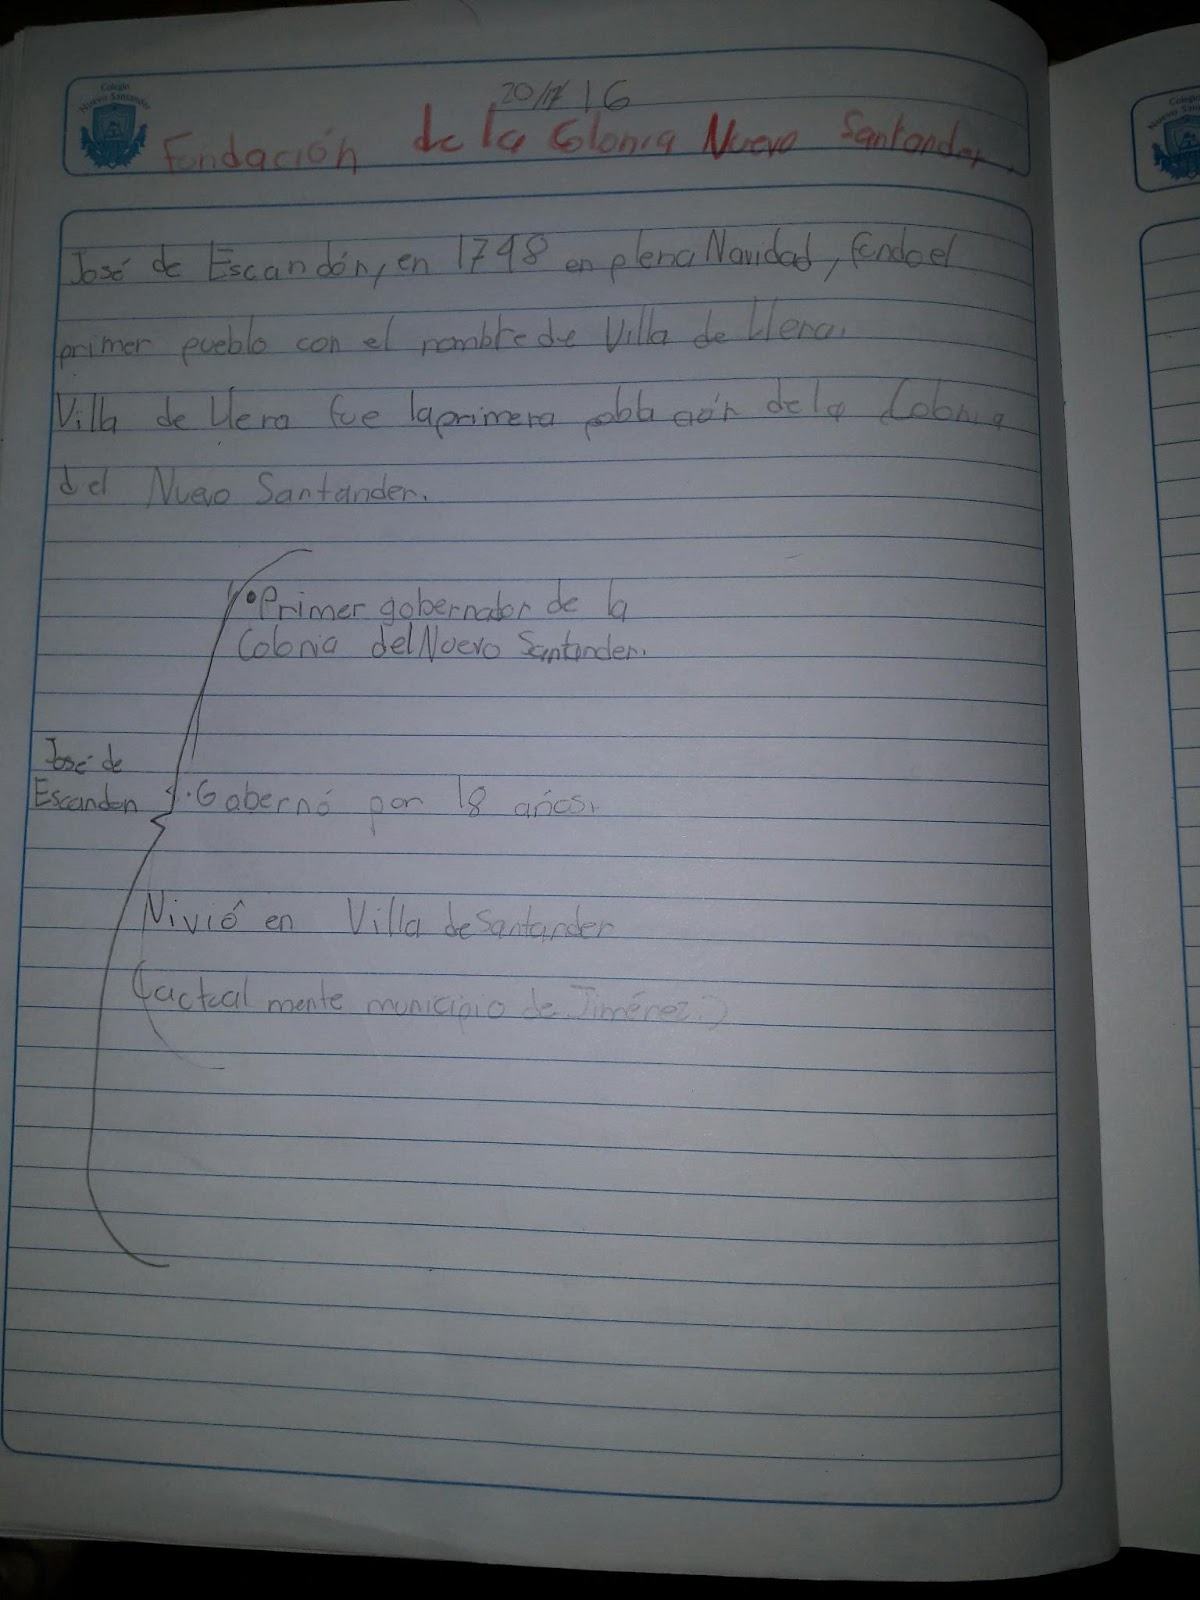 Colegio
Nuevo Santander
20/11/16
Fundación de la Colonia Nuevo Santander.
José de Escandón, en 1748 en plena Navidad, fundo el
primer pueblo con el nombre de Villa de Llera.
Villa de Llera fue la primera población de la Colonia
del Nuevo Santander.
• Primer gobernador de la
Colonia del Nuevo Santander.
José de
Escandon
• Gobernó por 18 años.
Vivió en Villa de Santander
(actual mente municipio de Jiménez.)